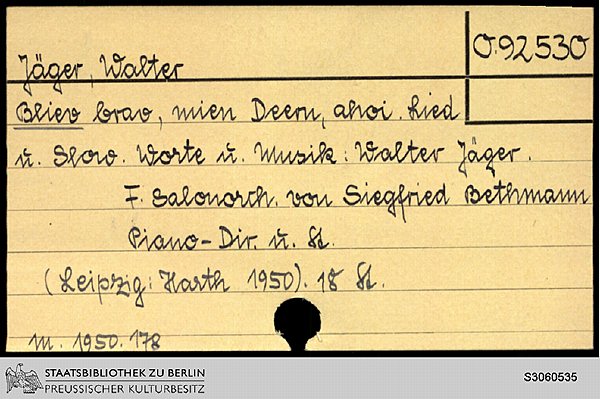 O.92530
Jäger, Walter
Bliev brav, mien Deern, ahoi. Lied
u. Slow. Worte u. Musik: Walter Jäger.
F. Salonorch. von Siegfried Bethmann
Piano-Dir. u. St.
(Leipzig: Harth 1950). 18 St.
M. 1950.178
STAATSBIBLIOTHEK ZU BERLIN
PREUSSISCHER KULTURBESITZ
S3060535